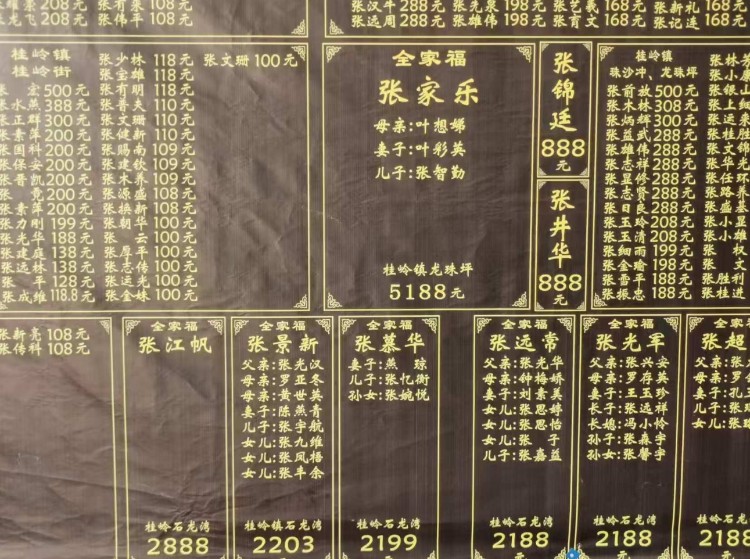 张有泉 168元
张龙飞 208元
张伟平 118元
张汉牛 288元
张远周 288元
张先泉 198元
张雄伟 198元
张艺羲 168元
张育文 168元
张新礼 168元
张记连 168元
桂岭镇
桂岭街
张宏 500元
张水燕 388元
张正群 300元
张素萍 200元
张国科 200元
张保安 200元
张晋凯 200元
张竟 200元
张素萍 200元
张力刚 199元
张光华 188元
张建庭 138元
张远林 138元
张军 128元
张成维 118.8元
张少林 118元
张宝雄 118元
张有明 118元
张晋夫 110元
张文珊 110元
张健新 110元
张赐南 109元
张建钦 109元
张木养 109元
张源盛 108元
张换新 108元
张朝华 100元
张云 100元
张厚平 100元
张志传 100元
张远光 100元
张金妹 100元
张文珊 100元
全家福
张家乐
母亲:叶想娣
妻子:叶彩英
儿子:张智勤
桂岭镇龙珠坪
5188元
张锦廷
888
元
张井华
888
元
桂岭镇
珠沙冲、龙珠坪
张前放 500元
张木林 308元
张炳辉 300元
张益武 288元
张伟华 288元
张志祥 288元
张显修 288元
张志贤 288元
张日良 288元
张玉玲 208元
张玉清 208元
张细雨 199元
张金瑜 198元
张晋平 188元
张振忠 188元
张林芳
张小
张银山
张上
张远荣
张桂胜
张文锦
张华光
张任环
张路养
张盛基
张小
张小雄
张权
张文
张胜利
张桂进
张新亮 108元
张传科 108元
张江帆
桂岭石龙湾
2888
全家福
张景新
父亲:张光汉
母亲:罗亚冬
母亲:黄世英
妻子:陈燕青
儿子:张宇航
女儿:张九维
女儿:张凤梧
女儿:张丰余
桂岭镇石龙湾
2203
元
全家福
张慕华
妻子:燕琼
儿子:张忆衡
孙女:张婉悦
桂岭石龙湾
2199
元
全家福
张远常
父亲:张光华
母亲:钟梅娇
妻子:刘素美
女儿:张思婷
女儿:张思怡
女儿:张子
儿子:张嘉益
桂岭石龙湾
2188
元
全家福
张光军
父亲:张兴安
母亲:罗存英
妻子:王玉珍
长子:张远祥
长媳:冯小伶
孙子:张森宇
孙女:张馨宇
桂岭石龙湾
2188
元
全家福
张超
父亲:张
母亲:罗
妻子:孔
女儿:张
桂岭石龙湾
2188